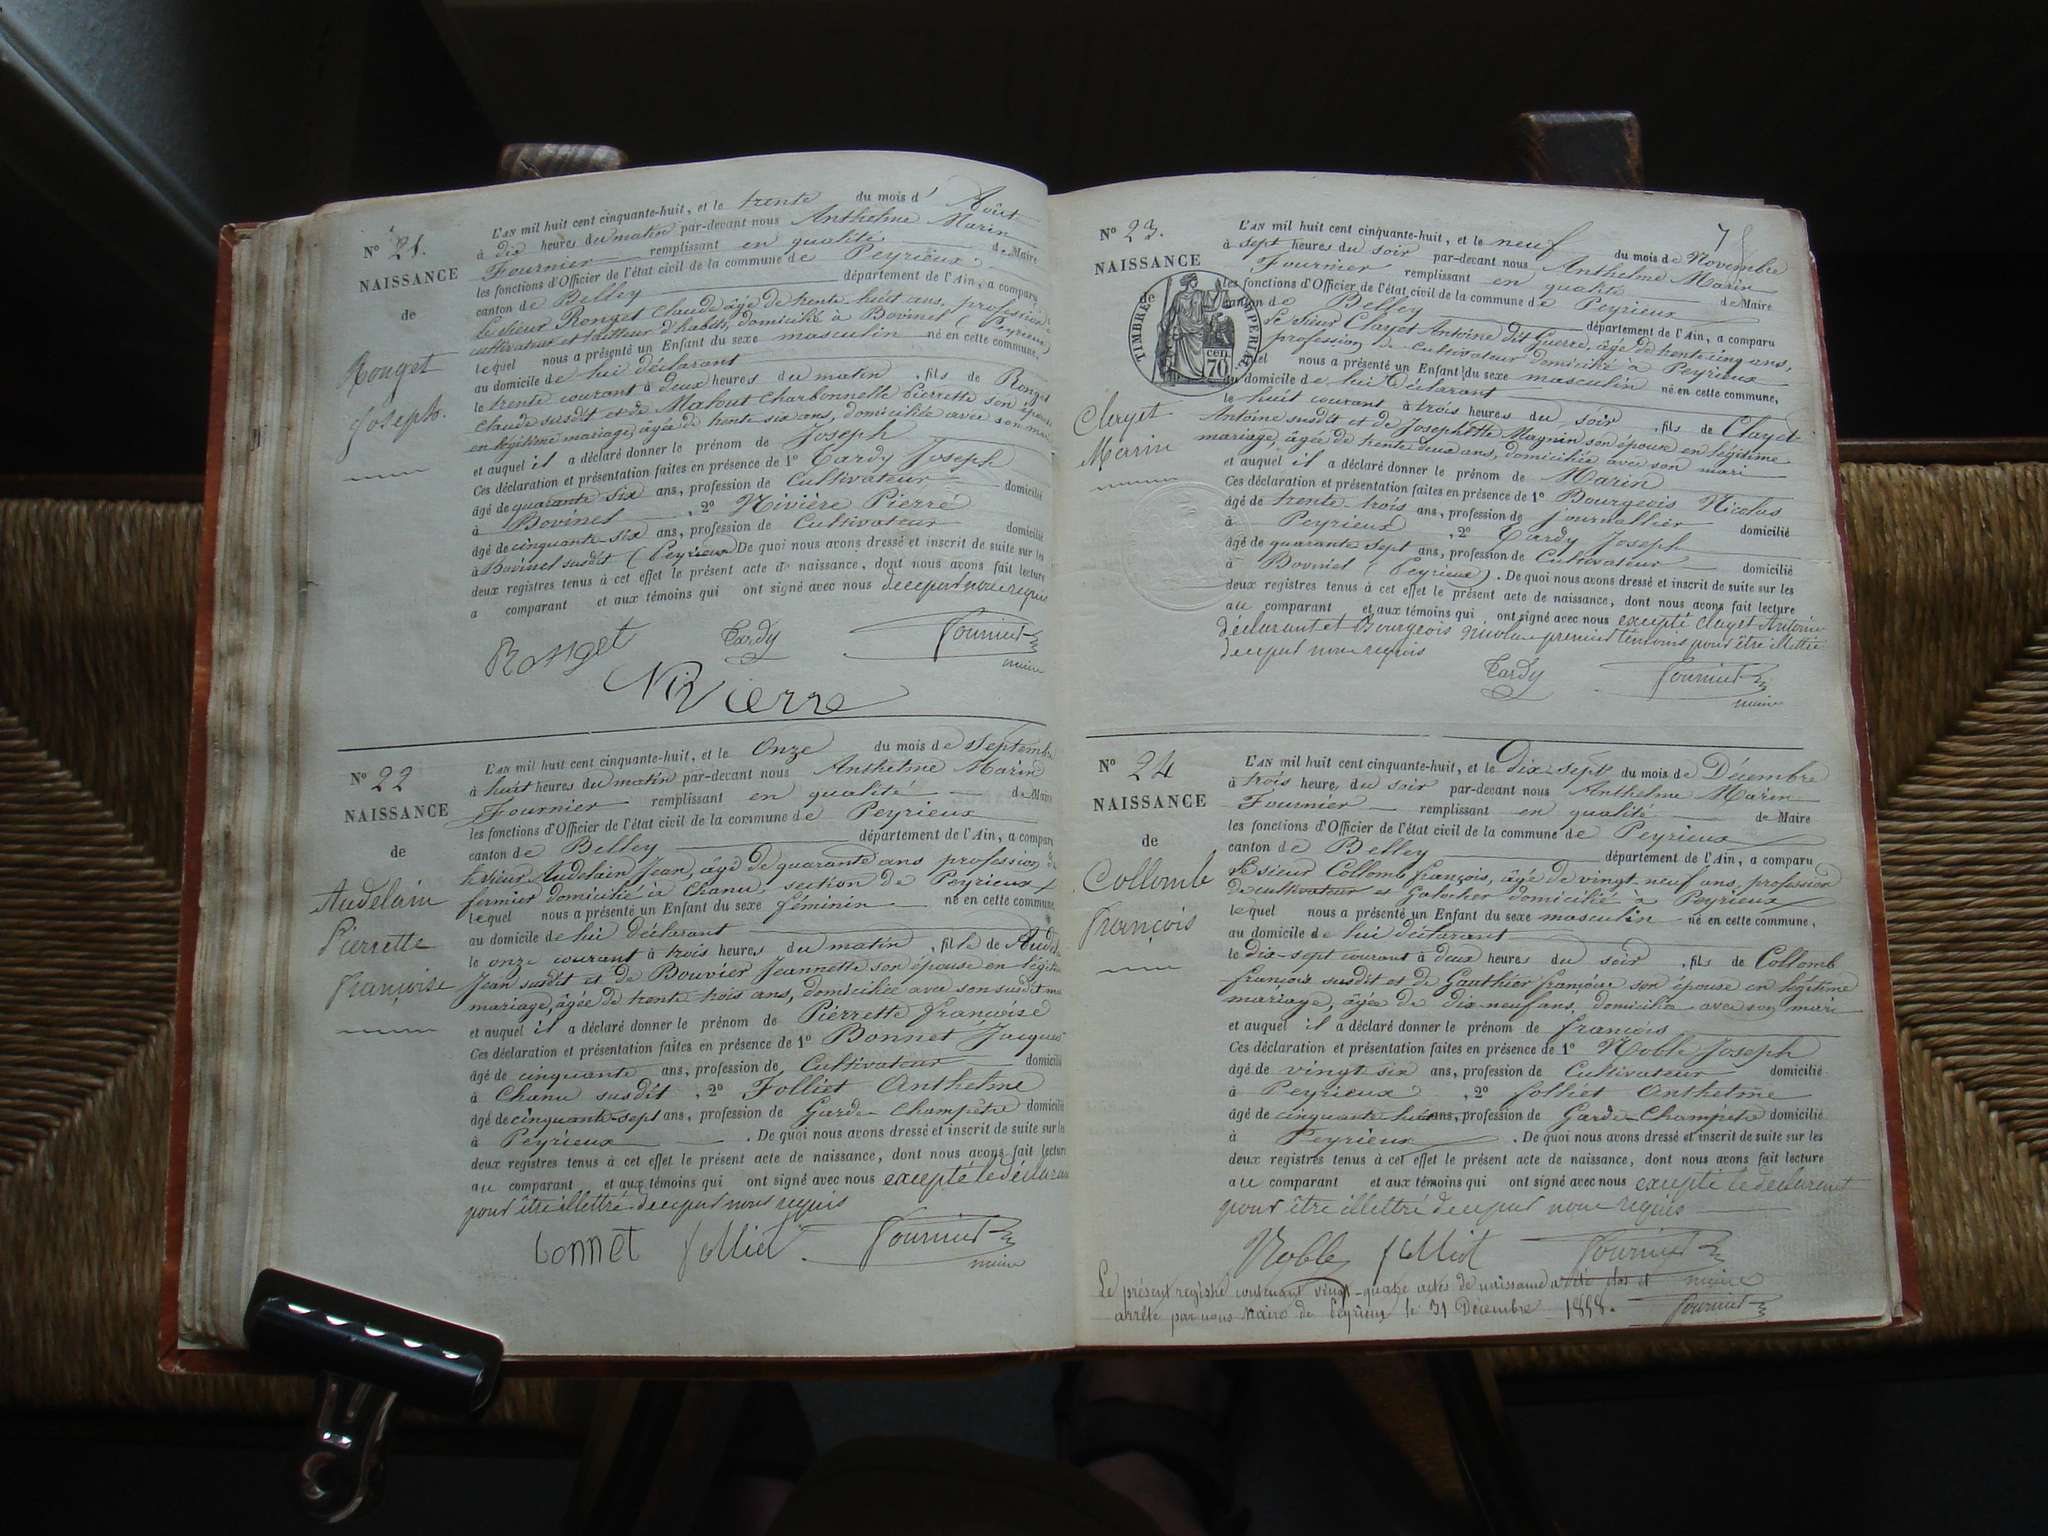 N° 21.
NAISSANCE
de
Rouget
Joseph.
L'AN mil huit cent cinquante-huit, et le trente du mois d' Août
à dix heures du matin par-devant nous Anthelme Marin
Fournier remplissant en qualité de Maire
les fonctions d'Officier de l'état civil de la commune de Peyrieux
canton de Belley département de l'Ain, a comparu
le sieur Rouget Claude âgé de trente huit ans, profession
cultivateur et tailleur d'habits, domicilié à Bovinel (Peyrieux)
lequel nous a présenté un Enfant du sexe masculin né en cette commune,
au domicile de lui déclarant
le trente courant à deux heures du matin, fils de Rouget
Claude susdit et de Charbonnelle Pierrette son épouse
en légitime mariage, âgée de trente six ans, domiciliée avec son mari
et auquel il a déclaré donner le prénom de Joseph
Ces déclaration et présentation faites en présence de 1° Tardy Joseph
âgé de quarante six ans, profession de Cultivateur domicilié
à Bovinel, 2° Rivière Pierre
âgé de cinquante six ans, profession de Cultivateur domicilié
à Bovinel susdit (Peyrieux) De quoi nous avons dressé et inscrit de suite sur les
deux registres tenus à cet effet le présent acte de naissance, dont nous avons fait lecture
a comparant et aux témoins qui ont signé avec nous de ce par nous requis
Rouget Tardy Fournier
maire
Rivierre
N° 22
NAISSANCE
de
Audelain
Pierrette
françoise
L'AN mil huit cent cinquante-huit, et le Onze du mois de Septembre
à huit heures du matin par-devant nous Anthelme Marin
Fournier remplissant en qualité de Maire
les fonctions d'Officier de l'état civil de la commune de Peyrieux
canton de Belley département de l'Ain, a comparu
le sieur Audelain Jean, âgé de quarante ans profession de
fermier domicilié à Chanu, section de Peyrieux
lequel nous a présenté un Enfant du sexe féminin né en cette commune,
au domicile de lui déclarant
le onze courant à trois heures du matin, fille de Aude
Jean susdit et de Bouvier Jeannette son épouse en légitime
mariage, âgée de trente trois ans, domiciliée avec son susdit mari
et auquel il a déclaré donner le prénom de Pierrette françoise
Ces déclaration et présentation faites en présence de 1° Bonnet Jacques
âgé de cinquante ans, profession de Cultivateur domicilié
à Chanu susdit, 2° Folliet Anthelme
âgé de cinquante-sept ans, profession de Garde-Champêtre domicilié
à Peyrieux. De quoi nous avons dressé et inscrit de suite sur les
deux registres tenus à cet effet le présent acte de naissance, dont nous avons fait lecture
au comparant et aux témoins qui ont signé avec nous excepté le déclarant
pour être illettré de ce par nous requis
bonnet folliet Fournier
maire
7
N° 23.
NAISSANCE
de
TIMBRE IMPERIAL
70 cen
Clayet
Marin
L'AN mil huit cent cinquante-huit, et le neuf du mois de Novembre
à sept heures du soir par-devant nous Anthelme Marin
Fournier remplissant en qualité de Maire
les fonctions d'Officier de l'état civil de la commune de Peyrieux
canton de Belley département de l'Ain, a comparu
le sieur Clayet Antoine dit Guerre, âgé de trente cinq ans,
profession de cultivateur domicilié à Peyrieux
lequel nous a présenté un Enfant du sexe masculin né en cette commune,
au domicile de lui déclarant
le huit courant à trois heures du soir, fils de Clayet
Antoine susdit et de Josephtte Magnin son épouse en légitime
mariage, âgée de trente deux ans, domiciliée avec son mari
et auquel il a déclaré donner le prénom de Marin
Ces déclaration et présentation faites en présence de 1° Bourgeois Nicolas
âgé de trente trois ans, profession de journallier domicilié
à Peyrieux, 2° Tardy Joseph
âgé de quarante sept ans, profession de Cultivateur domicilié
à Bovinel (Peyrieux). De quoi nous avons dressé et inscrit de suite sur les
deux registres tenus à cet effet le présent acte de naissance, dont nous avons fait lecture
au comparant et aux témoins qui ont signé avec nous excepté Clayet Antoine
déclarant et Bourgeois Nicolas premier témoins pour être illettré
de ce par nous requis
Tardy Fournier
maire
N° 24
NAISSANCE
de
Collomb
François
L'AN mil huit cent cinquante-huit, et le Dix-sept du mois de Décembre
à trois heures du soir par-devant nous Anthelme Marin
Fournier remplissant en qualité de Maire
les fonctions d'Officier de l'état civil de la commune de Peyrieux
canton de Belley département de l'Ain, a comparu
le sieur Collomb françois, âgé de vingt-neuf ans, profession
de cultivateur et Galocher domicilié à Peyrieux
lequel nous a présenté un Enfant du sexe masculin né en cette commune,
au domicile de lui déclarant
le dix-sept courant à deux heures du soir, fils de Collomb
françois susdit et de Gauthier françoise son épouse en légitime
mariage, âgée de dix-neuf ans, domiciliée avec son mari
et auquel il a déclaré donner le prénom de françois
Ces déclaration et présentation faites en présence de 1° Noble Joseph
âgé de vingt six ans, profession de Cultivateur domicilié
à Peyrieux, 2° folliet Anthelme
âgé de cinquante huit ans, profession de Garde-Champêtre domicilié
à Peyrieux. De quoi nous avons dressé et inscrit de suite sur les
deux registres tenus à cet effet le présent acte de naissance, dont nous avons fait lecture
au comparant et aux témoins qui ont signé avec nous excepté le déclarant
pour être illettré de ce par nous requis
Noble folliet Fournier
maire
Le présent registre contenant vingt-quatre actes de naissance a été clos et
arrêté par nous Maire de Peyrieux le 31 Décembre 1858. Fournier